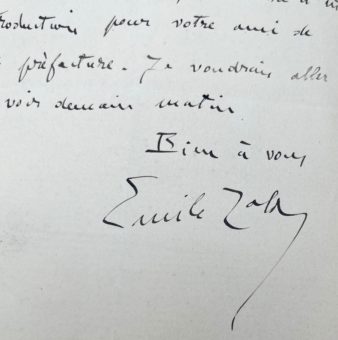 à
troduction pour votre ami de
préfecture. Je voudrais aller
voir demain matin
Bien à vous
Emile Zola